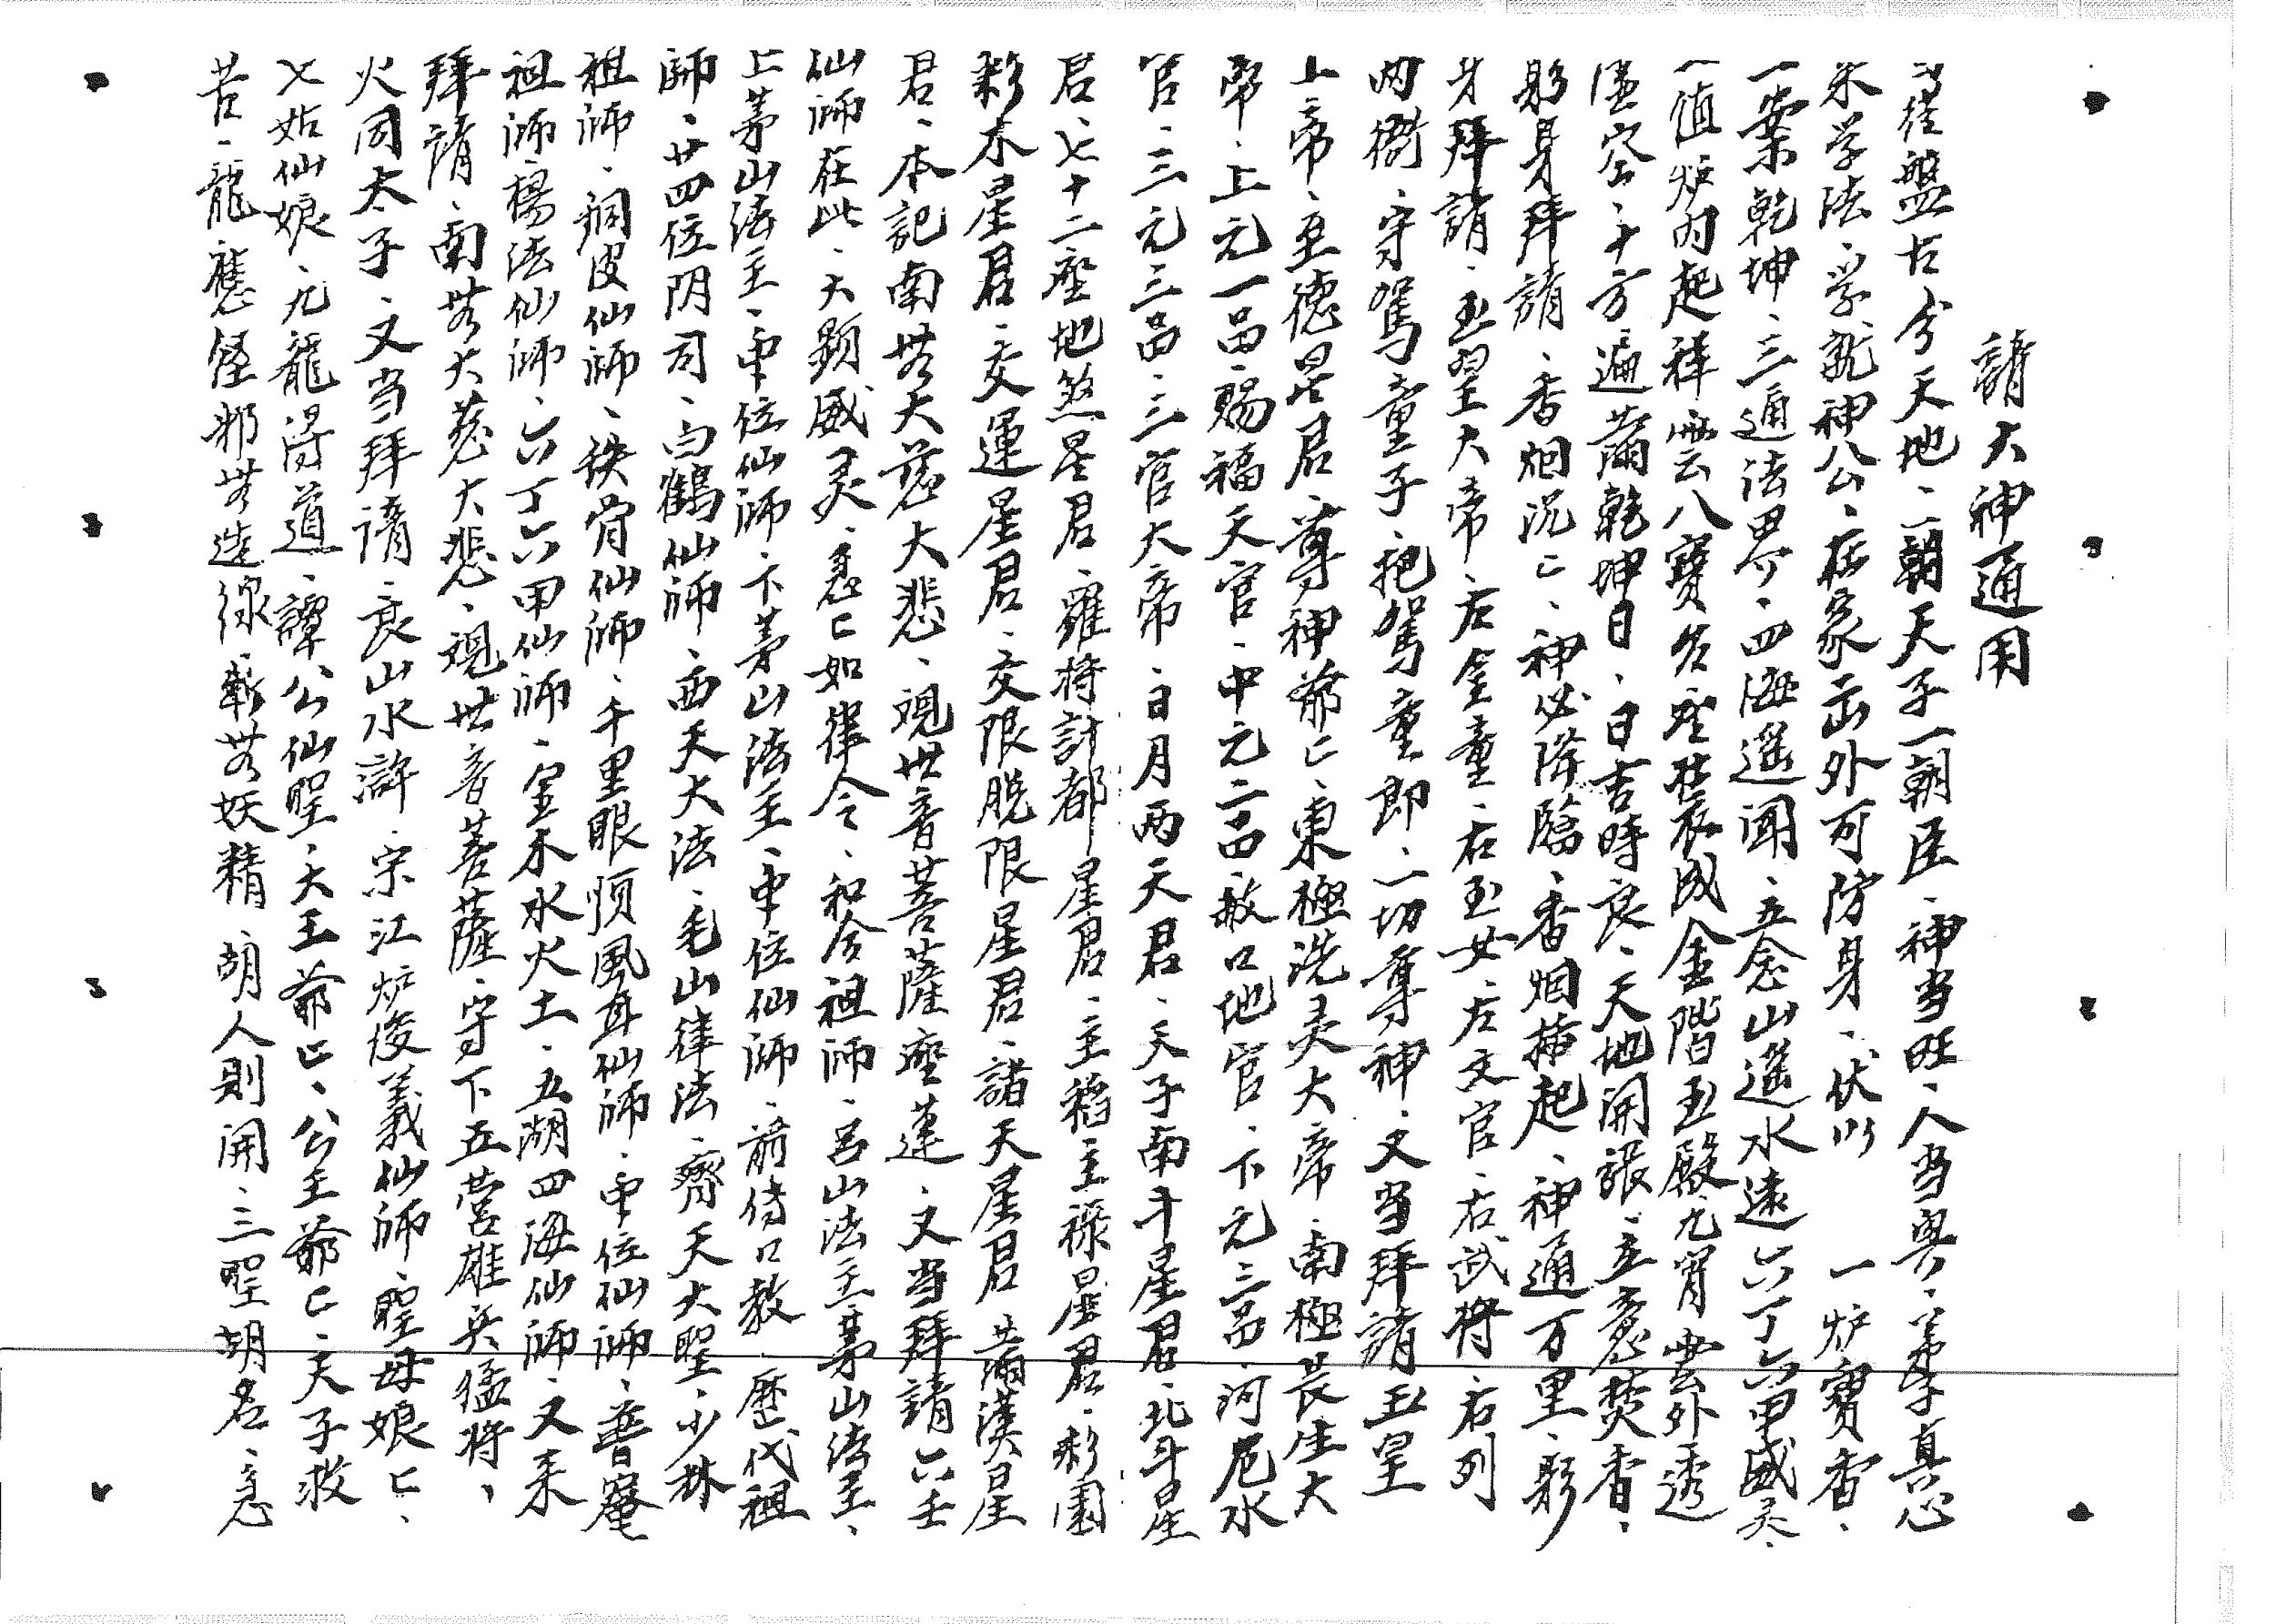 請大神通用
盤古分天地、一朝天子一朝臣、神当旺、人当興、弟子真心
来学法、学就神公、在家出外可防身、伏以 一炉寶香、
一案乾坤、三通法界、四海遥聞、五念山遥水遠六丁六甲威灵、
一值炉内起祥雲八寶 成金階玉殿九霄雲外透
虚空、十方遍满乾坤日、日吉時良、天地開張、立意焚香、
躬身拜請、香烟沉匕、神必降臨、香烟捧起、神通万里、躬
身拜請、玉皇大帝、左金童、右玉女、左文官、右武将、右列
两衙、守駕童子、把駕童郎、一切尊神、又当拜請玉皇
上帝、至德星君、尊神爺匕、東極洗灵大帝、南極長生大
帝、上元一品賜福天官、中元二品赦口地官、下元三品河厄水
官、三元三品三官大帝、日月两天君、天子南斗星君、北斗星
君、七十二座地煞星君、羅将計都星君、主稻主禄星君、彩園
彩木星君、交運星君、交限脱限星君、諸天星君、满漢星
君、本記南無大慈大悲、观世音菩薩座蓮、又当拜請六壬
仙師在此、大顕威灵、急匕如律令、和合祖師、呂山法主茅山法主、
上茅山法主、中位仙師、下茅山法主、中位仙師、前傳口教、歷代祖
師、廿四位阴司、白鶴仙師、西天大法、毛山律法、齊天大聖、少林
祖師、銅皮仙師、鉄骨仙師、千里眼順風耳仙師、中位仙師、普庵
祖師、楊法仙師、六丁六甲仙師、金木水火土、五湖四海仙師、又来
拜請、南無大慈大悲、观世音菩薩、守下五营雄兵猛将、
火同太子、又当拜請、良山水滸、宋江炉俊義仙師、聖母娘匕、
七姑仙娘、九龍得道、譚公仙聖、大王爺匕、公王爺匕、天子救
苦、龍 怪邪無造 、斬無妖精、胡人則開、三聖胡名、急